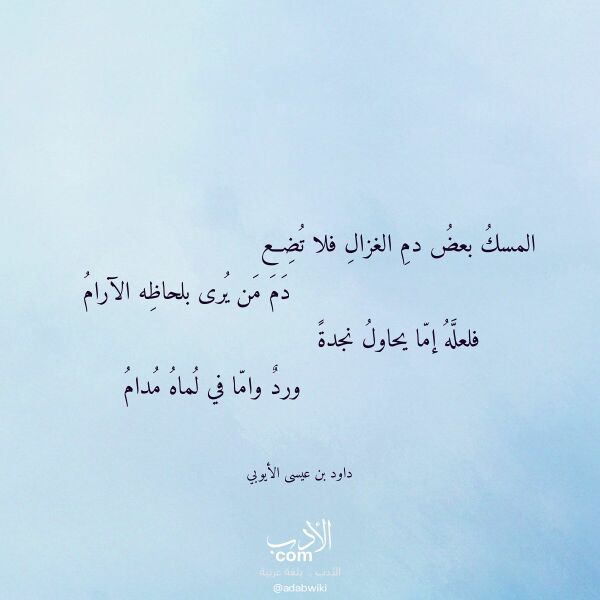 المسكُ بعضُ دمِ الغزالِ فلا تُضِع
دَمَ مَن يُرى بلحاظِه الآرامُ
فلعلَّهُ إمّا يحاولُ نجدةً
وردٌ وامّا في لُماهُ مُدامُ
داود بن عيسى الأيوبي
الأدب
com
الأدب .. بلغة عربية
@adabwiki